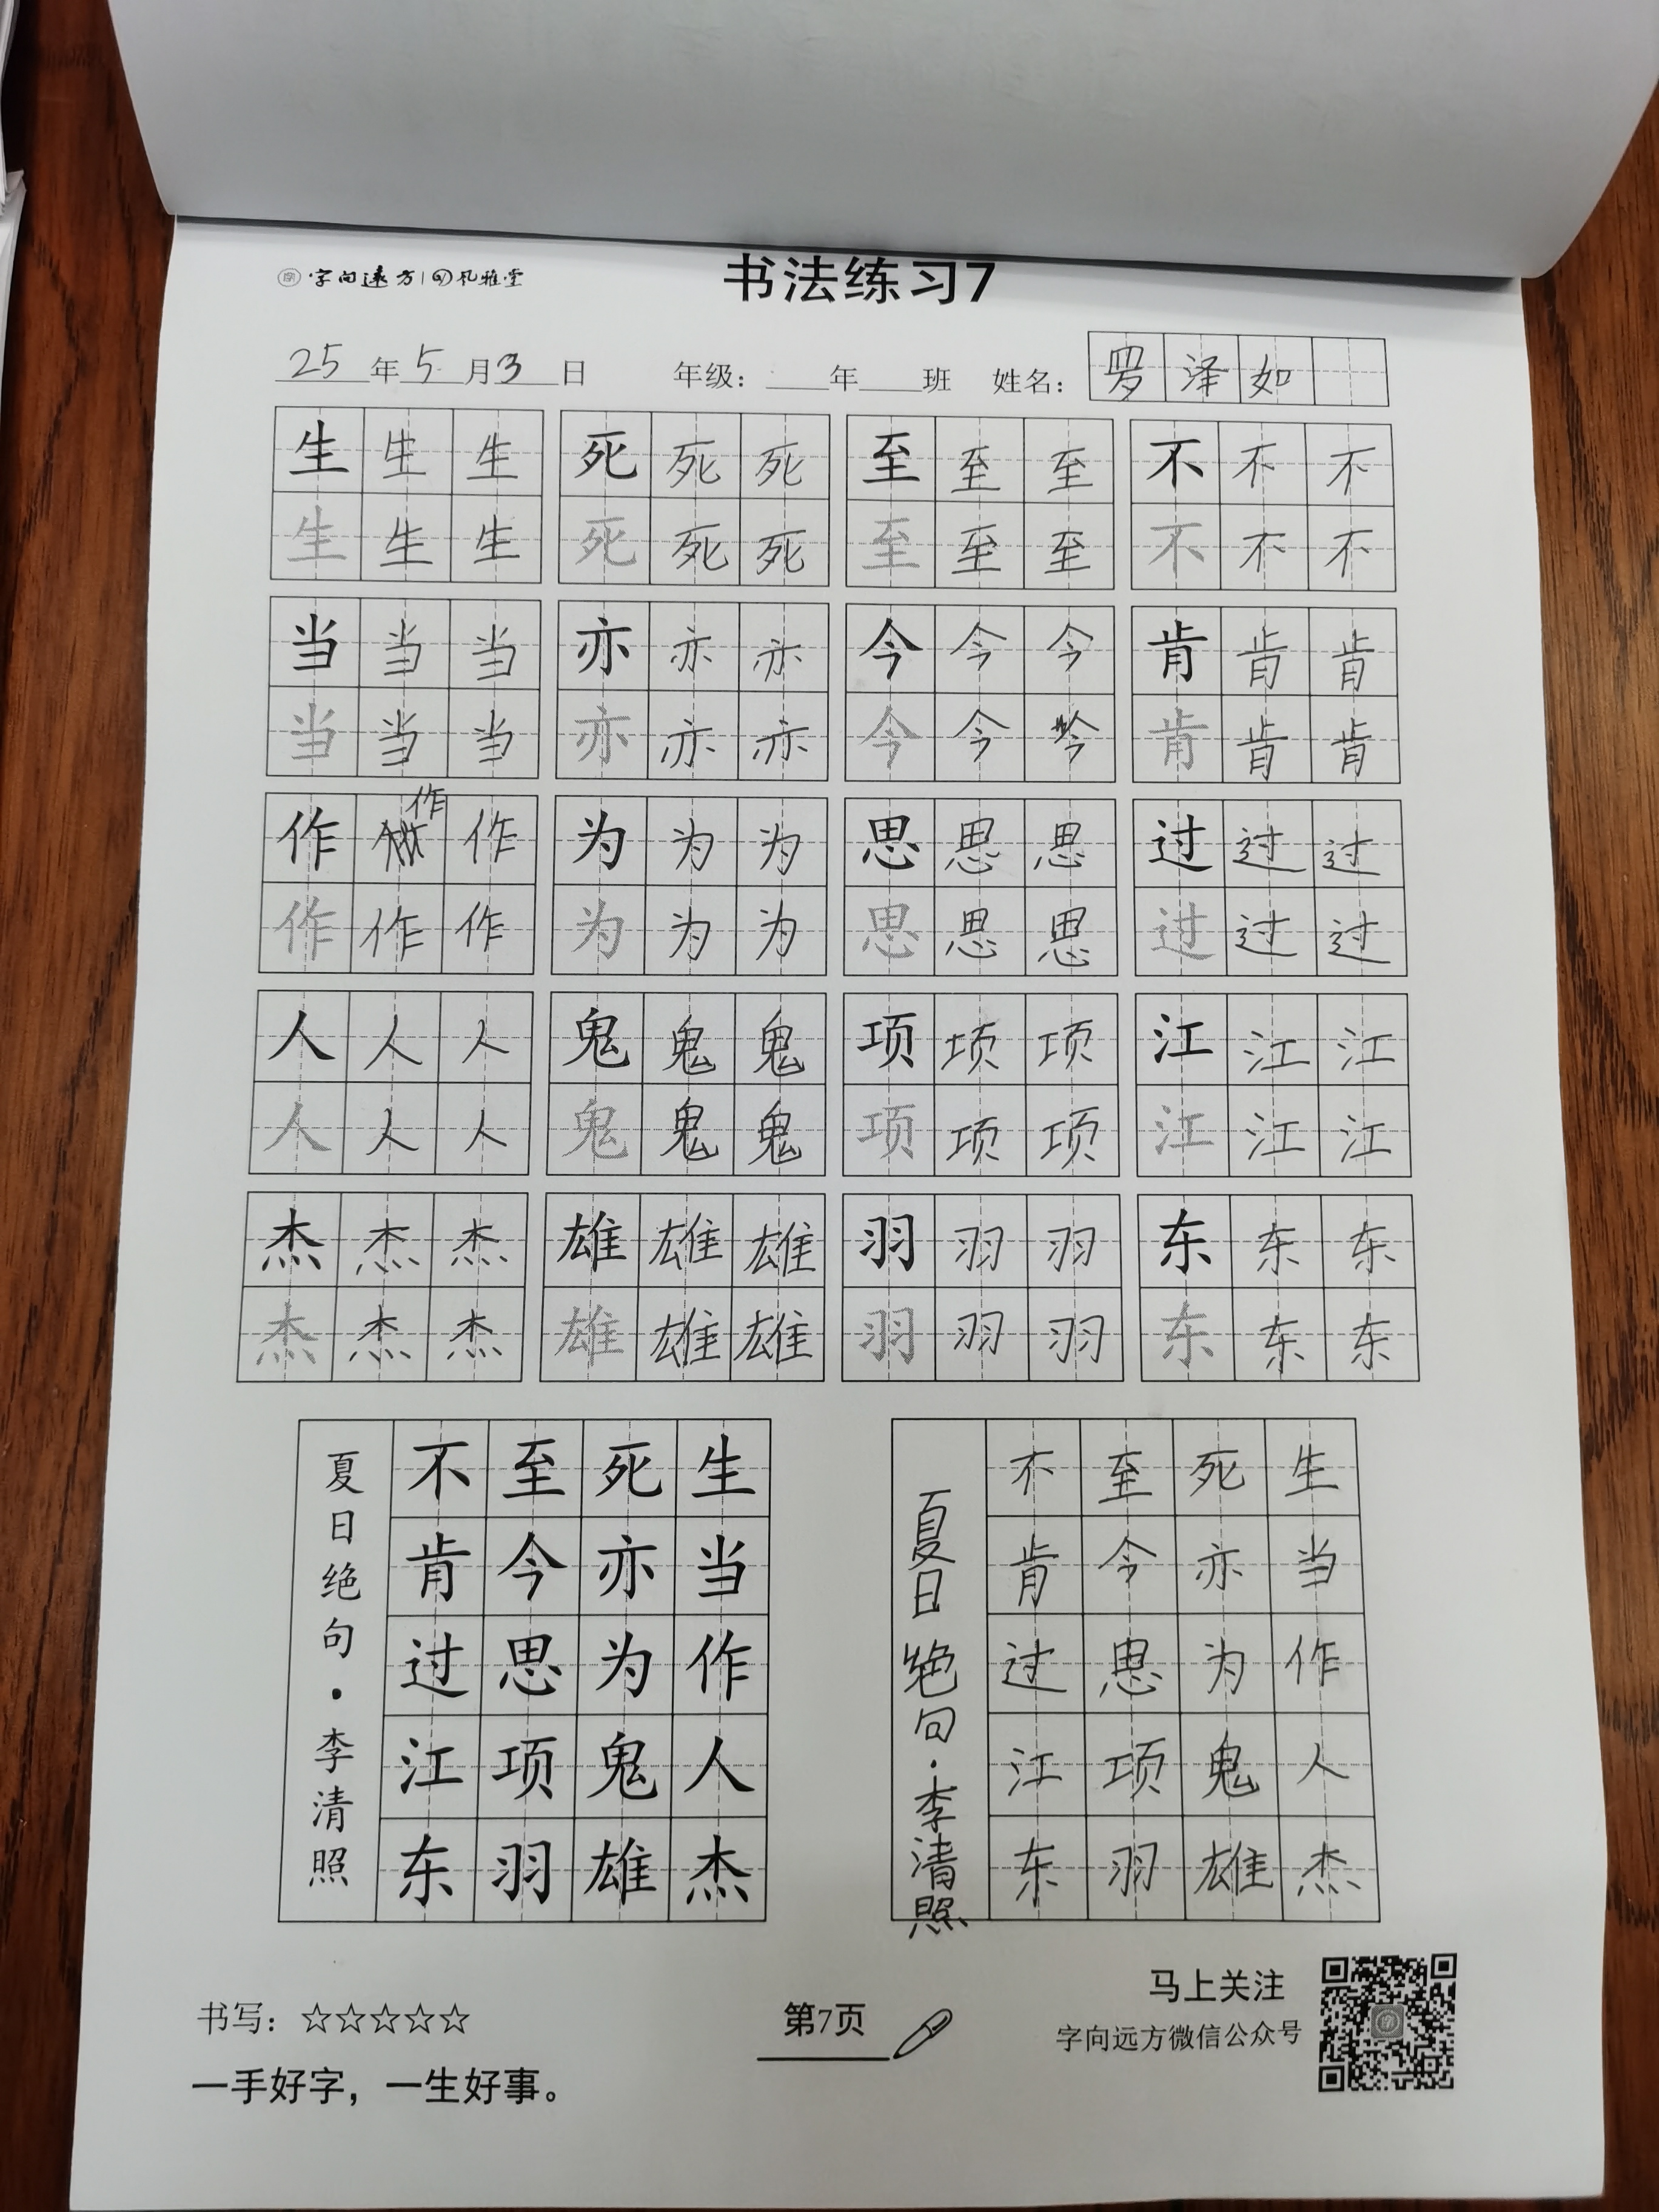 字向远方 | 风雅堂
书法练习7
25年5月3日 年级：____年____班 姓名：罗泽如
生生生 死死死 至至至 不不不
生生生 死死死 至至至 不不不
当当当 亦亦亦 今今今 肯肯肯
当当当 亦亦亦 今今今 肯肯肯
作作作 为为为 思思思 过过过
作作作 为为为 思思思 过过过
人人人 鬼鬼鬼 项项项 江江江
人人人 鬼鬼鬼 项项项 江江江
杰杰杰 雄雄雄 羽羽羽 东东东
杰杰杰 雄雄雄 羽羽羽 东东东
生当作人杰
死亦为鬼雄
至今思项羽
不肯过江东
夏日绝句·李清照
生当作人杰
死亦为鬼雄
至今思项羽
不肯过江东
夏日绝句·李清照
书写：☆☆☆☆☆
一手好字，一生好事。
第7页
马上关注
字向远方微信公众号